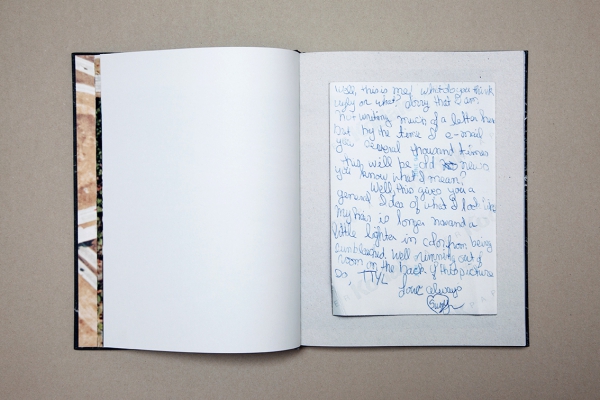 Well, this is me! what do you think
ugly or what? Sorry that I am
not writing much of a letter her
but by the time I e-mail
you several thousand times
this we'll be old news
you know what I mean?
Well, this gives you a
general Idea of what I look like
my hair is longer now and a
little lighter in color from being
sunbleached. Well runnin out of
room on the back of this picture
So, TTYL
Love always